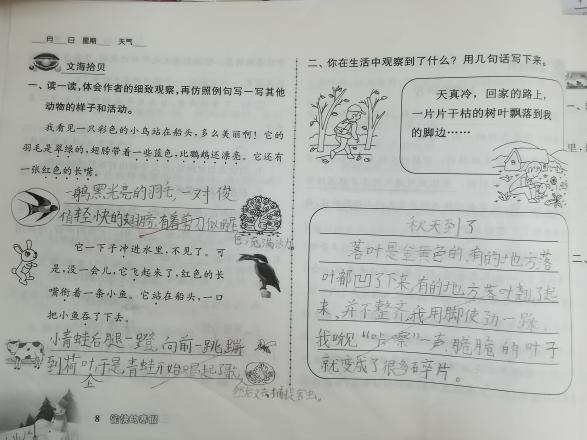 月 日 星期 天气
文海拾贝
一、读一读,体会作者的细致观察,再仿照例句写一写其他
动物的样子和活动。
我看见一只彩色的小鸟站在船头,多么美丽啊!它的
羽毛是翠绿的,翅膀带着一些蓝色,比鹦鹉还漂亮。它还有
一张红色的长嘴。
一身黑光亮的羽毛,一对俊
俏轻快的翅膀,有着剪刀似的尾
它一下子冲进水里,不见了。可
是,没一会儿,它飞起来了,红色的长
嘴衔着一条小鱼。它站在船头,一口
把小鱼吞了下去。
小青蛙后腿一蹬,向前一跳,蹦
到荷叶上于是,青蛙开始唱起了歌,
然后又去捕捉害虫。
8 愉快的寒假
二、你在生活中观察到了什么?用几句话写下来。
天真冷,回家的路上,
一片片干枯的树叶飘落到我
的脚边……
秋天到了
落叶是金黄色的,有的地方落
叶都凹了下来,有的地方落叶翘了起
来,并不整齐,我用脚使劲一踩,
我听见“咔嚓”一声,脆脆的叶子
就变成了很多碎片。